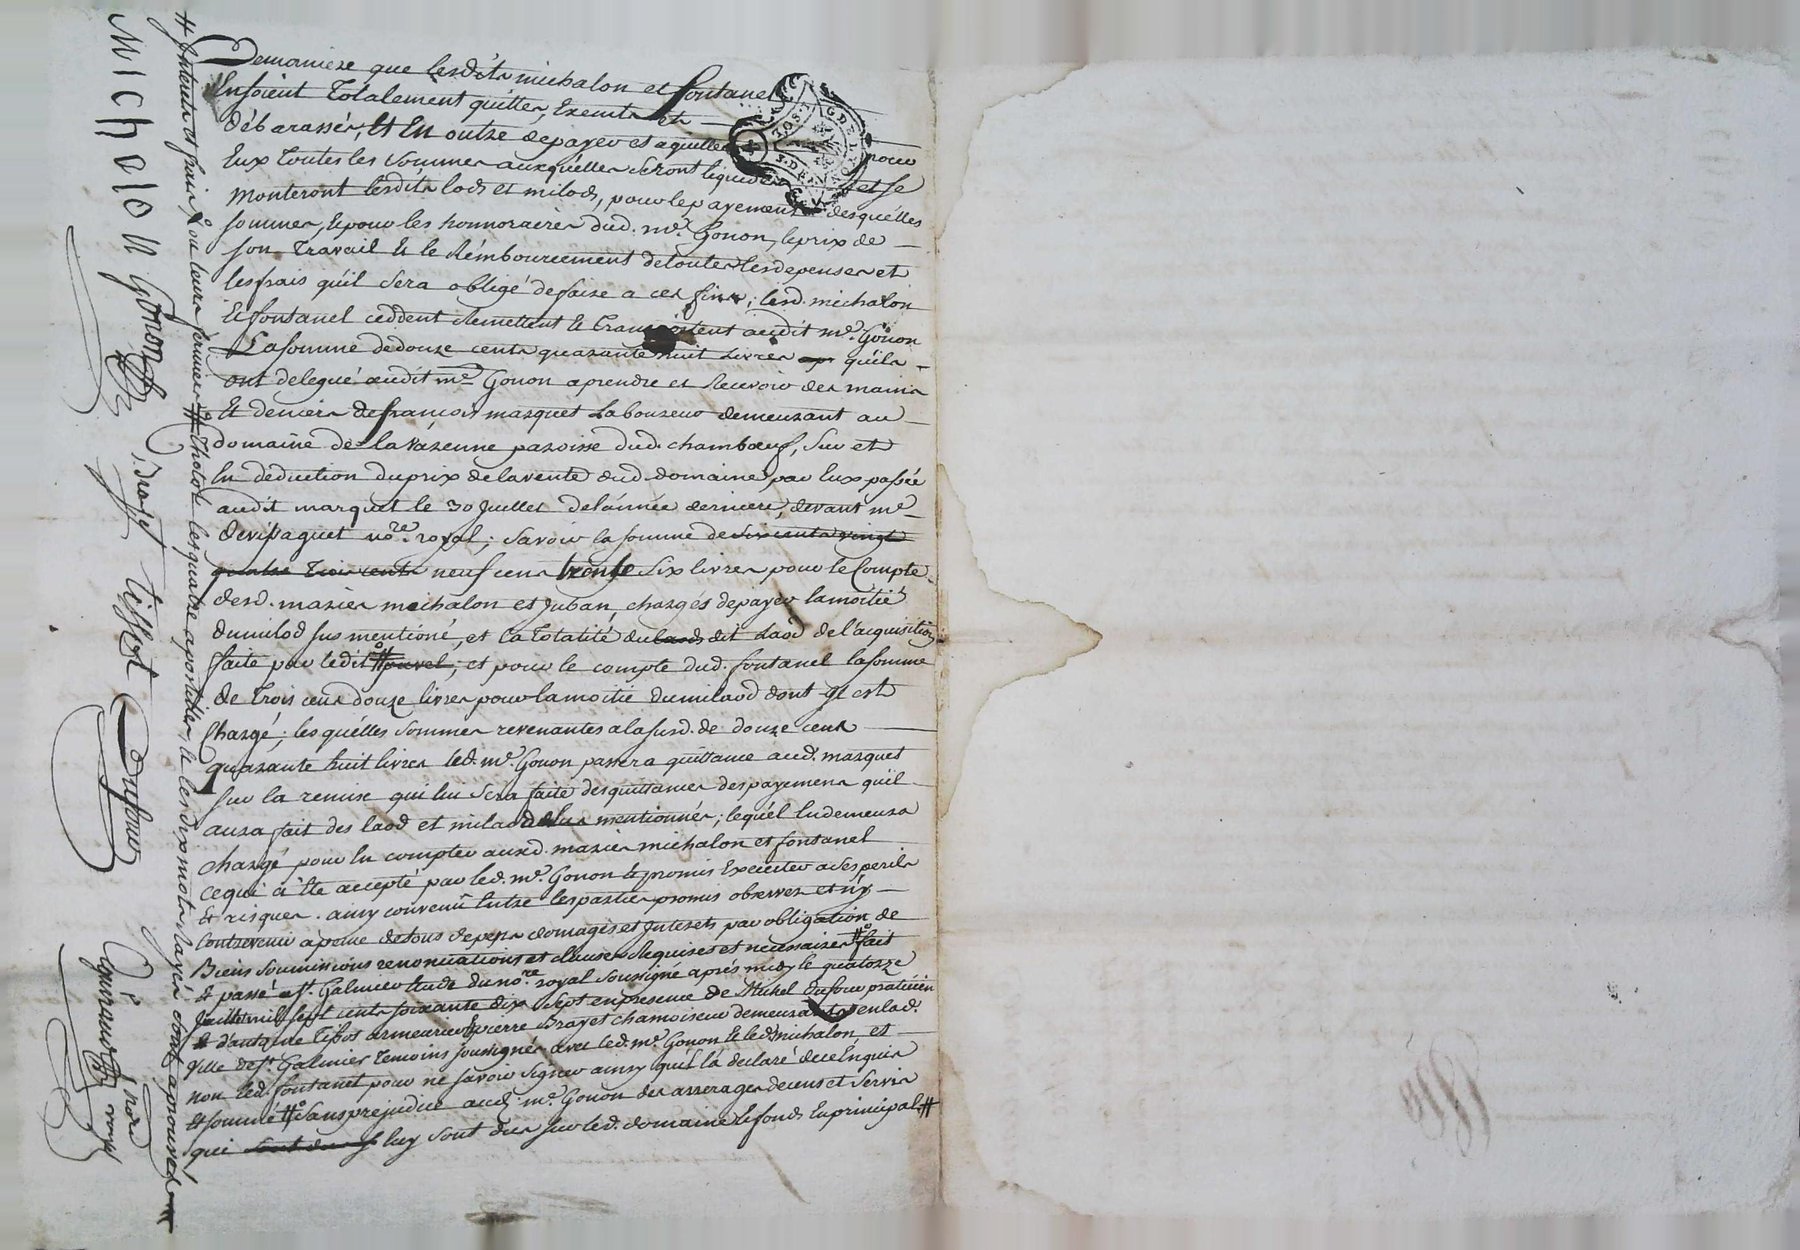 Demaniere que lesdits michalon et fontanel
En soient Totalement quittes, Exempts et
débarassés, Et En outre de payer et aquitter pour
Eux Toutes les sommes auxquélles seront liquidés et se
Monteront lesdits lods et milods, pour le payement desquélles
sommes, Et pour les honnoraires dud. me. Gonon, le prix de
son Travail Et le Rémbourcement de toutes les depenses et
les frais qu'il sera obligé de faire a ces fins; lesd. michalon
Et fontanel ceddent Remettent Et Transportent audit me. Gonon
La somme de douze cents quarante huit Livres qu'ils
ont delegué audit me. Gonon a prendre et Recevoir des mains
Et deniers de françois marquet Laboureur demeurant au
domaine de la Varenne paroisse dud. chambœuf, sur et
En deduction du prix de la vente dud. domaine par Eux passée
audit marquet le 30 Juillet de l'année derniere, devant me
devipaguet nore. royal; savoir la somme de six cents vingt
quatre Trois cents neuf cens trente six livres pour le Compte
desd. maries michalon et Juban, chargés de payer la moitié
du milod sus mentioné, et la Totalité du laods dit Laod de l'acquisition
faite par ledit ; et pour le compte dud. fontanel la somme
de Trois cens douze livres pour la moitié du milaod dont il est
Chargé; lesquélles sommes revenantes a la susd. de douze cens
quarante huit livres led. me. Gonon passera quittance aud. marquet
sur la remise qui lui sera faite des quittances des payemens qu'il
aura fait des laod et milaod mentionnés; lequél En demeura
chargé pour En compter auxd. maries michalon et fontanel
ce qui à Eté accepté par led. me. Gonon Et promis Executer a ses perils
Et risques. ainsy convenû Entre les parties promis observer et n'y
Contrevenir a peine de tous depens domages et Interets par obligation de
Biens soumissions renonciations et clauses Requises et necessaires fait
Et passé a St. Galmier Etude du nore. royal soussigné aprés midy le quatorze
Juillet mil sept cents soixante dix sept en presence de Michel Dufour praticien
d'autre Tissot armeurier Et pierre Brayet chamoiseur demeurants en lad.
Ville de St. Galmier Temoins soussignés avec led. me. Gonon Et led. michalon, et
non led. fontanel pour ne savoir signer ainsy qu'il l'à declaré de ce Enquis
Et sommé sans prejudice aud. me. Gonon des arrerages de cens et servis
qui luy sont dus sur led. domaine Et fonds En principal #
# Interets et frais, Et ou leurs fermiers # Chotot les quatre apostilles, Et les dix mots rayés sont aprouvés
Michalon Gonon Brayet Tissot Dufour
nore. royal